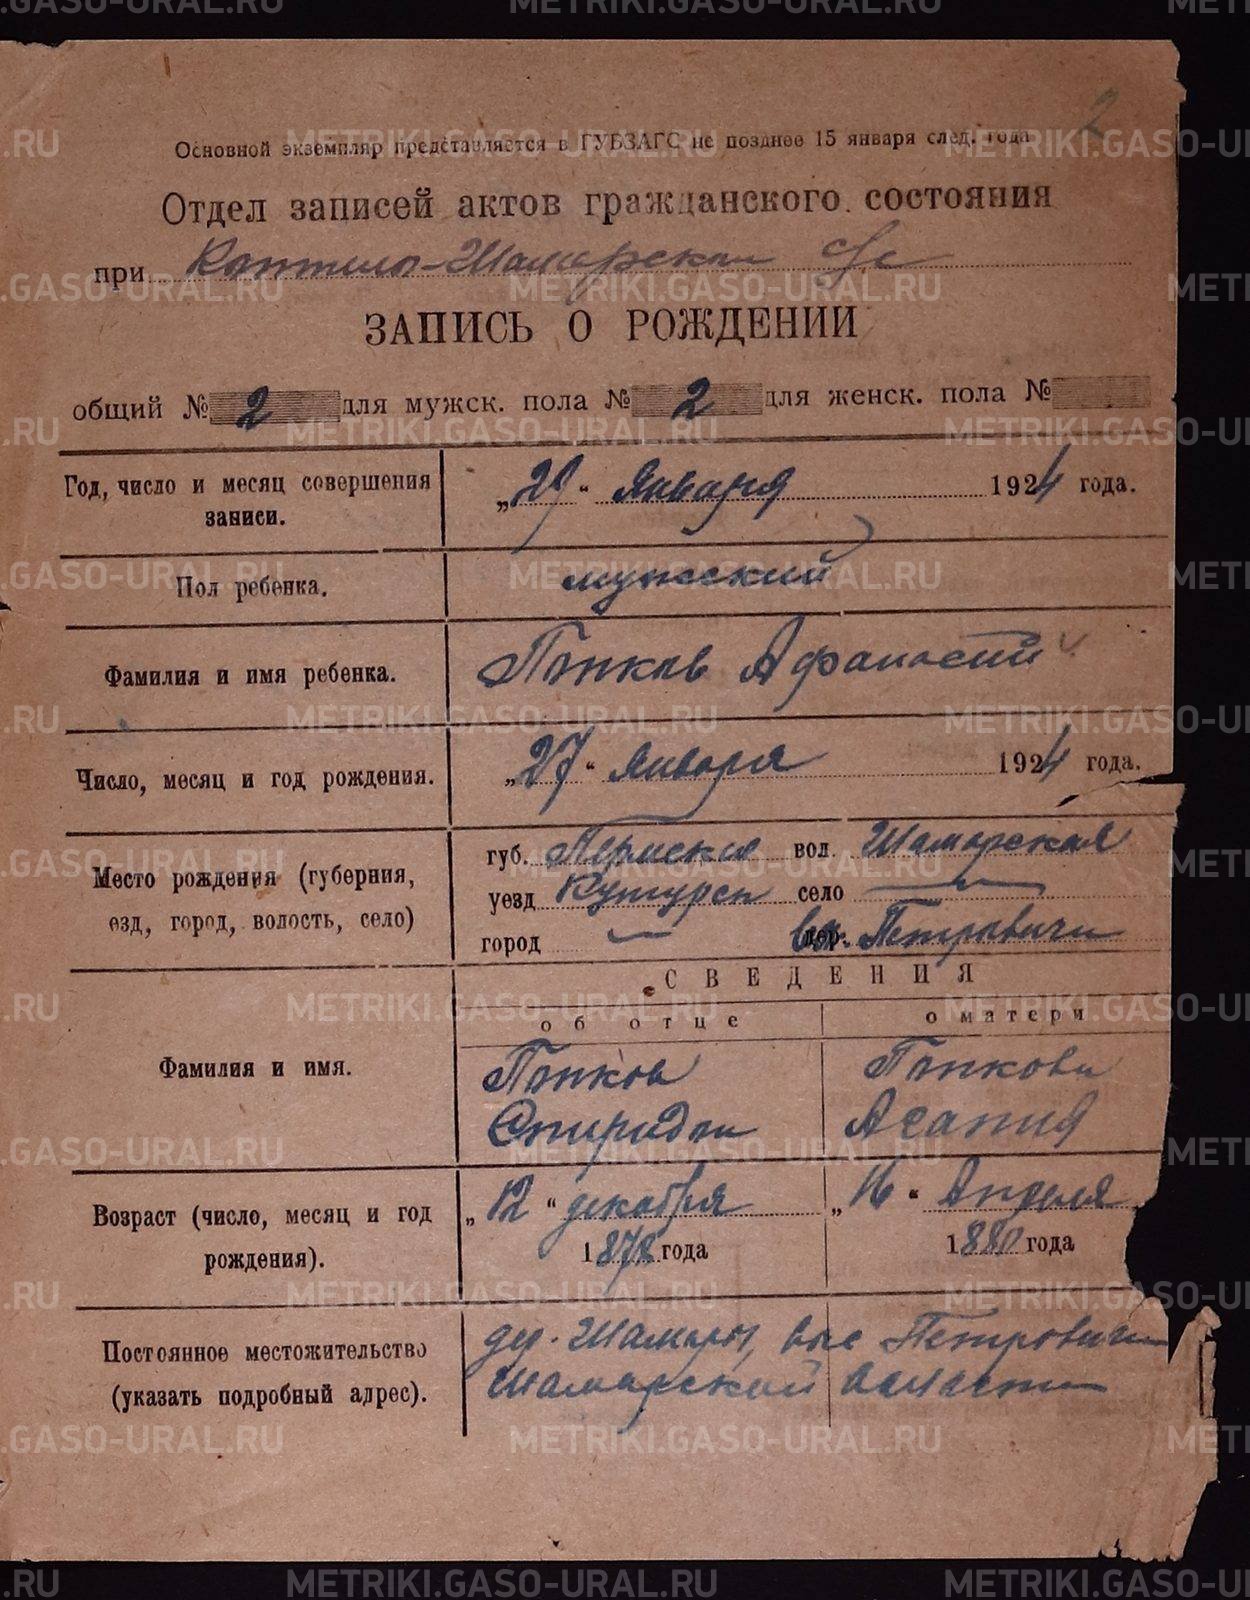 2
Основной экземпляр представляется в ГУБЗАГС не позднее 15 января след. года
Отдел записей актов гражданского состояния
при Коптело-Шамарском с/с
ЗАПИСЬ О РОЖДЕНИИ
общий № 2 для мужск. пола № 2 для женск. пола №
Год, число и месяц совершения записи. „29“ Января 1924 года.
Пол ребенка. мужский
Фамилия и имя ребенка. Попков Афанасий
Число, месяц и год рождения. „27“ Января 1924 года.
Место рождения (губерния, езд, город, волость, село)
губ. Пермская вол Шамарская
уезд Кунгурск село —
город — выс. Петровичи
СВЕДЕНИЯ
об отце о матери
Фамилия и имя.
Попков Попкова
Спиридон Асания
Возраст (число, месяц и год рождения).
„12“ декабря „16“ Апреля
1878 года 1880 года
Постоянное местожительство (указать подробный адрес).
дер. Шамары, выс Петровичи
Шамарской волости
METRIKI.GASO-URAL.RU